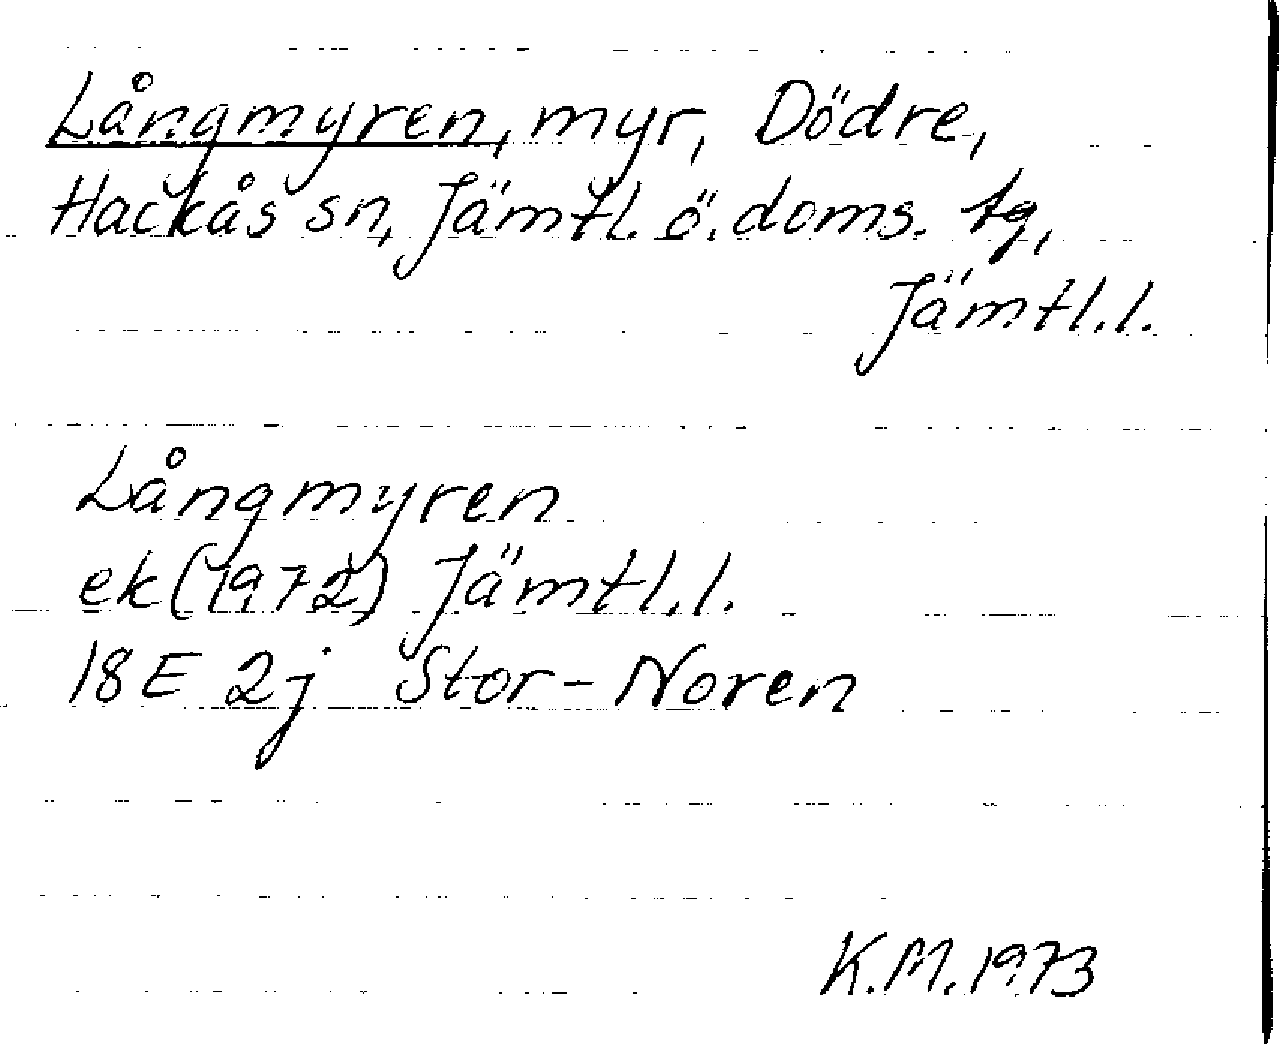 Långmyren, myr, Dödre,
Hackås sn, Jämtl. ö. doms. tg,
Jämtl. l.
Långmyren
ek (1972) Jämtl. l.
18E 2j Stor-Noren
K.M. 1973